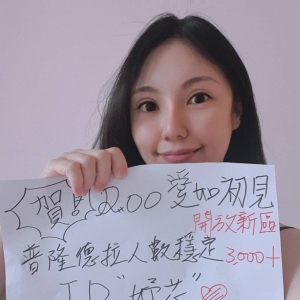 賀 2.00 愛如初見
開放新區
普隆德拉人數穩定 3,000+
ID"妤芯"